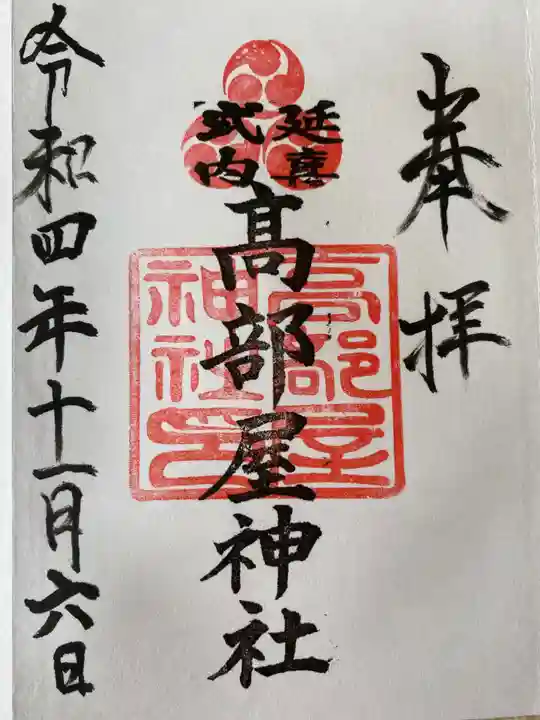 奉拝
延喜
式内
髙部屋神社
髙部屋
神社印
令和四年十一月六日